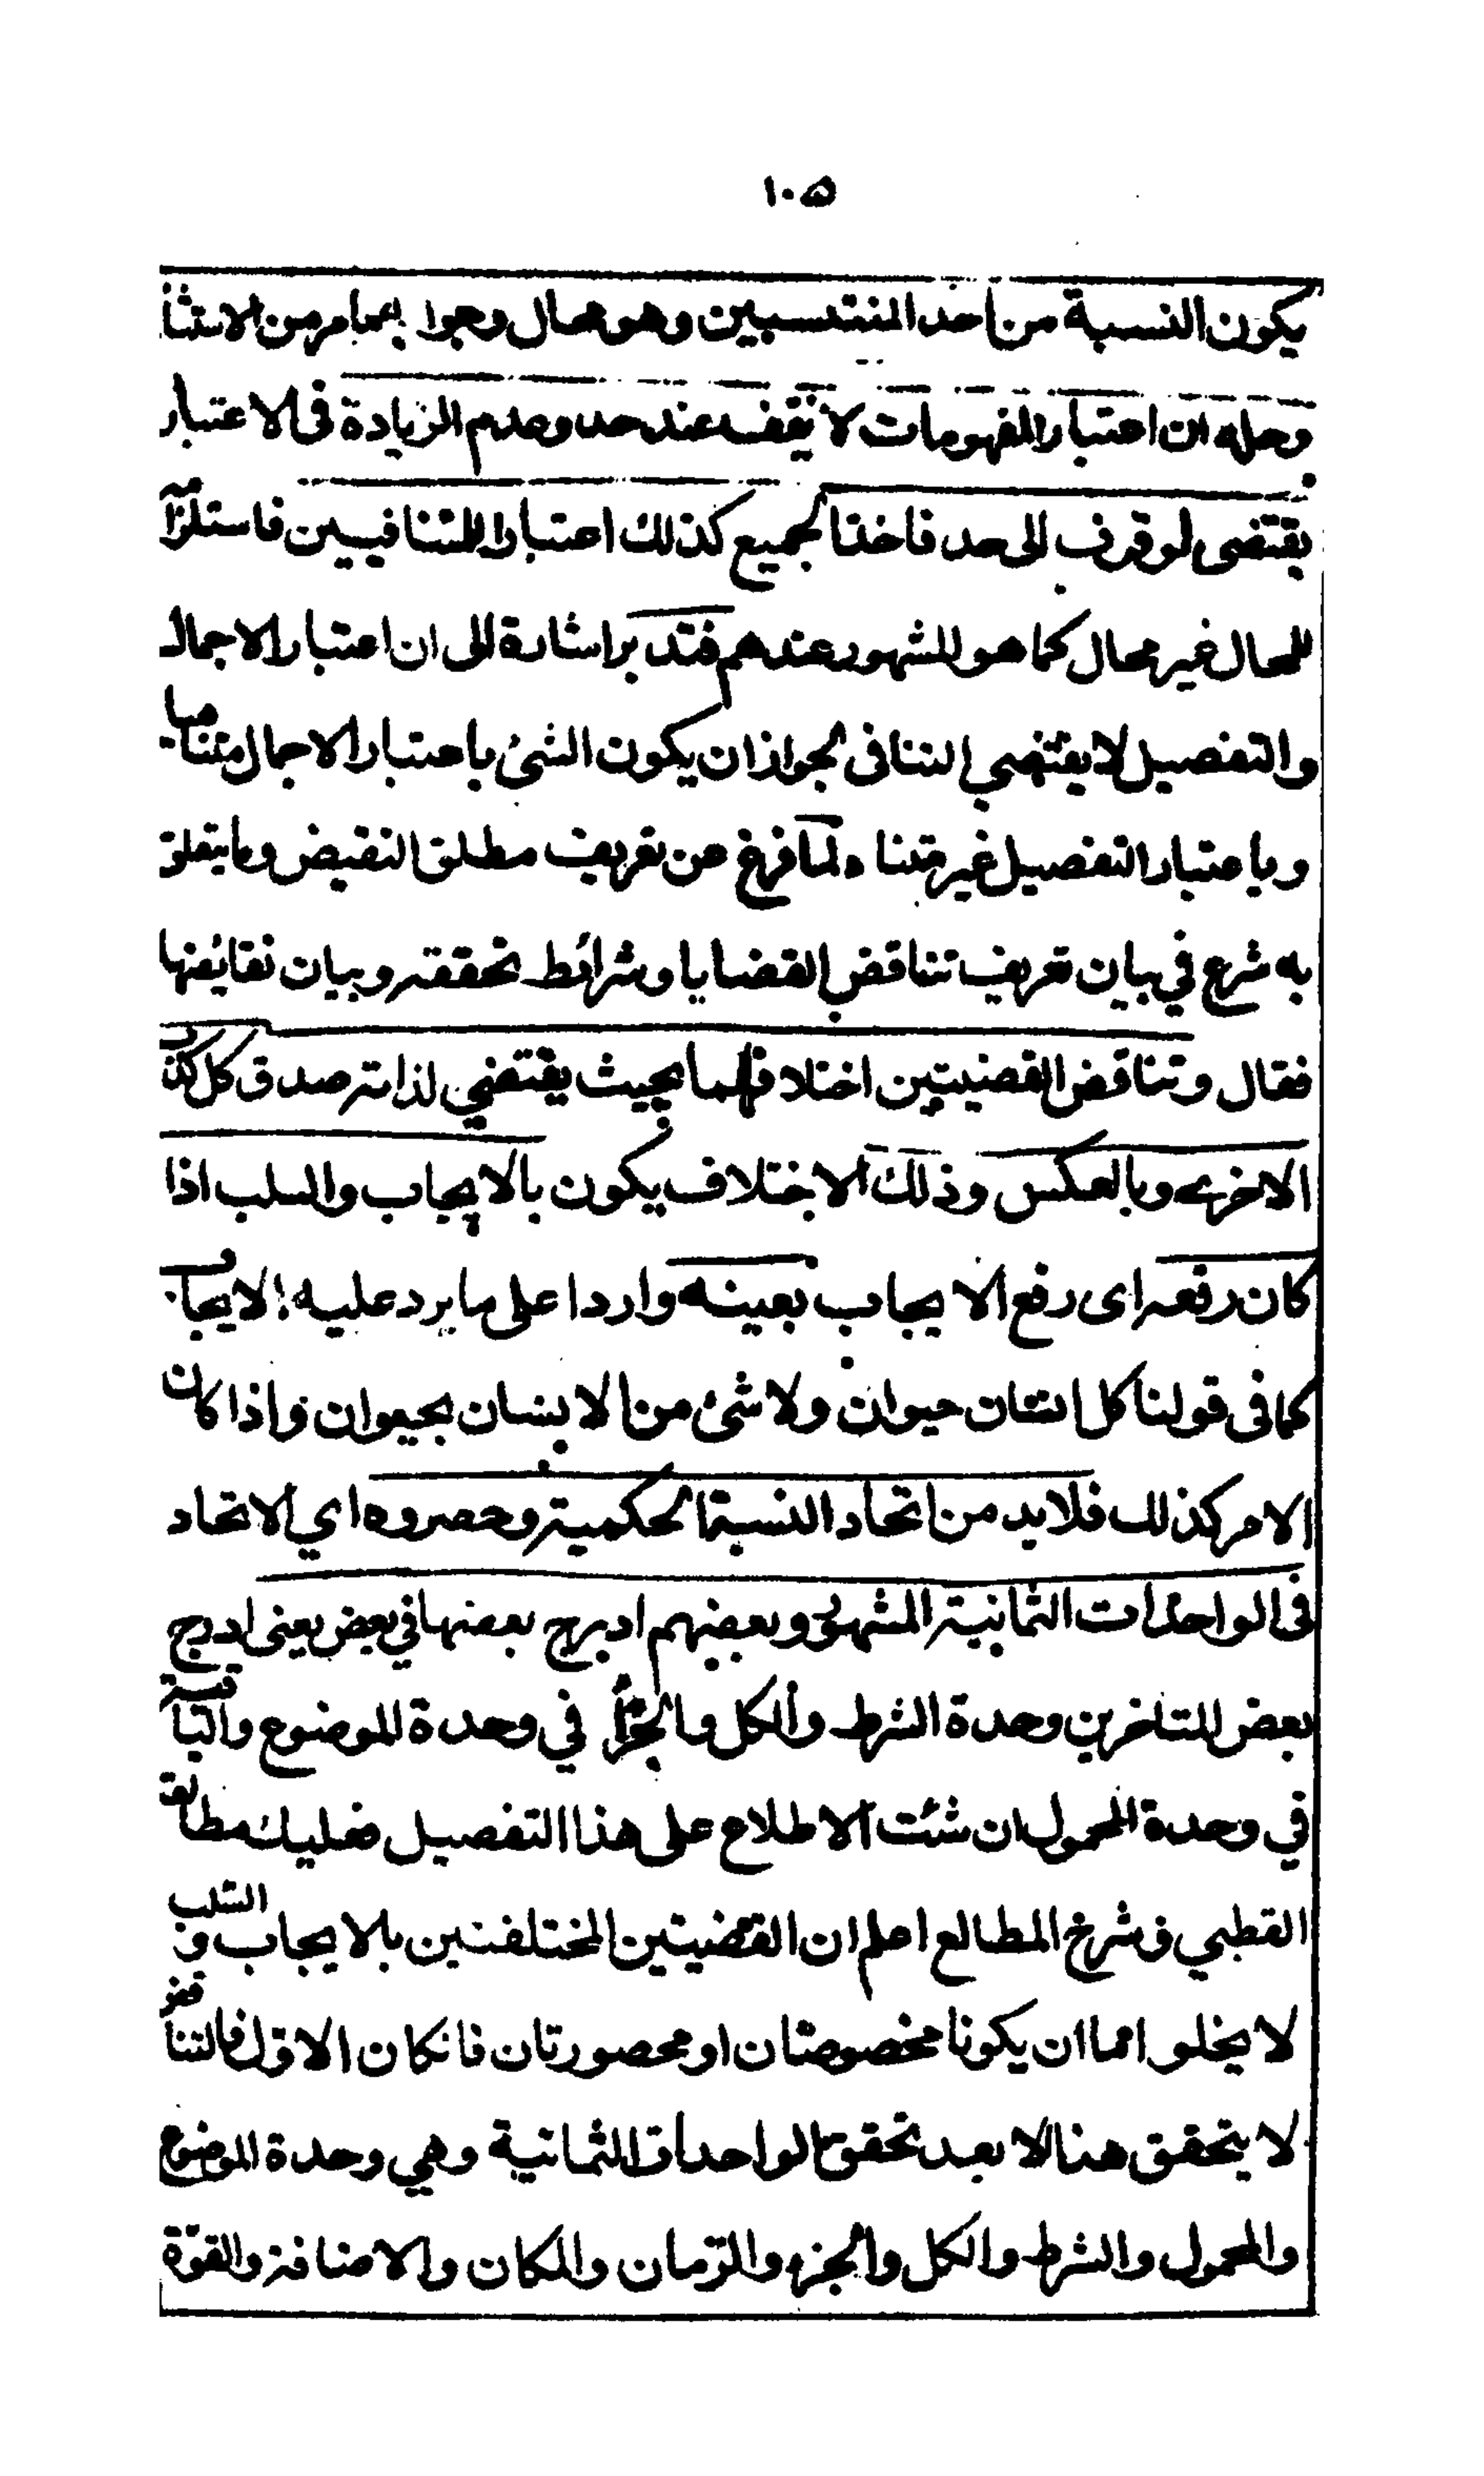 ١٠٥
يكون النسبة من احد المنتسبين وهو محال وجوابه مامر من الاستثنا
وحله ان اعتبار المفهومات لا يقف عند حد وعدم الزيادة فى الاعتبار
يقتضى لوقوف الى حد فاخذ الجميع كذلك اعتبار المتنافيين فاستلزامه
للمحال غير محال كما هو المشهور عندهم فتدبر اشارة الى ان اعتبار الاجمال
والتفصيل لا يقتضي التنافى لجواز ان يكون الشئ باعتبار الاجمال متناهيا
وباعتبار التفصيل غير متناه ولما فرغ عن تعريف مطلق النقيض وما يتعلق
به شرع في بيان تعريف تناقض القضايا وشرائط تحققه وبيان نقائضها
فقال وتناقض القضيتين اختلافهما بحيث يقتضي لذاته صدق كل كذب
الاخرى وبالعكس وذلك الاختلاف يكون بالايجاب والسلب اذا
كان رفعه اى رفع الايجاب بعينه واردا على ما يرد عليه الايجاب
كما فى قولنا كل انسان حيوان ولا شئ من الانسان بحيوان واذا كان
الامر كذلك فلا بد من اتحاد النسبة الحكمية وحصروه اي الاتحاد
فى الواحدات الثمانية المشهورة وبعضهم ادرج بعضها في بعض يعنى ادرج
بعض المتاخرين وحدة الشرط والكل والجزأ في وحدة الموضوع والباقية
في وحدة المحمول ان شئت الاطلاع على هذا التفصيل فعليك مطالعة
القطبي وشرح المطالع اعلم ان القضيتين المختلفتين بالايجاب والسلب
لا يخلو اما ان يكونا مخصوصتان او محصورتان فانكان الاول فالتناقض
لا يتحقق هنا الا بعد تحقق الواحدات الثمانية وهي وحدة الموضوع
والمحمول والشرط والكل والجزء والزمان والمكان والاضافة والقوة